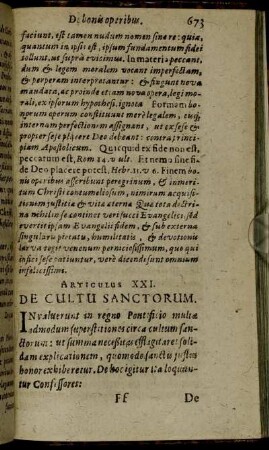 De bonis operibus. 673
faciunt, est tamen nudum nomen sina re: quia,
quantum in ipsi est, ipsum fundamentum fidei
tollunt, us supra evicimus. In materia peccant,
dum & legem moralem vocant imperfectam,
& perperam interpretantur: & fingunt nova
mandata, ac proinde etiam nova opera, legi mo-
rali, ex ipsorum hypothesi, ignota. Formam bo-
norum operum constituunt merè legalem, eiusq́;
internam perfectionem assignant, ut ex sese &
propter sese placere Deo debeant: contra princi-
pium Apostolicum. Quicquid ex fide non est,
peccatum est, Rom 14. v ult. Et nemo sine fi-
de Deo placere potest. Hebr. 11. v. 6. Finem bo-
nis operibus asseribunt peregrinum, & inmeri-
tum Christi contumeliosum, nimirum acquisi-
tionem justitiæ & vitæ æternæ Quæ tota doctri-
na nihil in se continet veri succi Evangelici, sed
evertit ipsam Evangelij fidem, & sub externa
singularis pietatis, humilitatis, & devotionis
larva tegit venenum perniciosissimum, quo qui
infici se se patiuntur, verè dicendi sunt omnium
infelicissimi.
ARTICULUS XXI.
DE CULTU SANCTORUM.
INvaluerunt in regno Pontificio multæ
admodum superstitiones circa cultum san-
ctorum: ut summa necessitas efflagitaret soli-
dam explicationem, quomodo sanctis justus
honor exhiberetur. De hoc igitur ita loquun-
tur Confessores:
Ff De